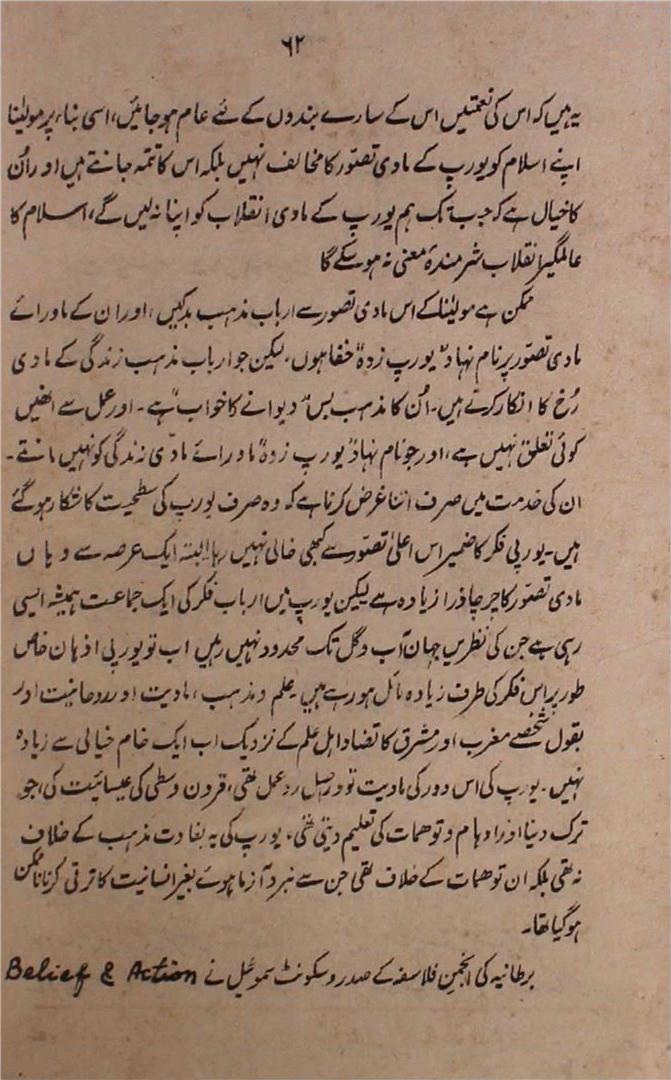 ۶۲
یہ ہیں کہ اس کی نعمتیں اس کے سارے بندوں کے لئے عام ہو جائیں، اسی بناء پر مولیٰنا
اپنے اسلام کو یورپ کے مادی تصوّر کا مخالف نہیں بلکہ اس کا تتمہ جانتے ہیں اور اُن
کا خیال ہے کہ جب تک ہم یورپ کے مادی انقلاب کو اپنا نہ لیں گے، اسلام کا
عالمگیر انقلاب شرمندۂ معنی نہ ہو سکے گا
ممکن ہے مولیٰنا کے اس مادی تصور سے ارباب مذہب بدکیں، اور ان کے ماورائے
مادی تصوّر پر نام نہاد "یورپ زدہ" خفا ہوں۔ لیکن جو ارباب مذہب زندگی کے مادی
رُخ کا انکار کرتے ہیں۔ اُن کا مذہب بس "دیوانے کا خواب" ہے۔ اور عمل سے انھیں
کوئی تعلق نہیں ہے، اور جو نام نہاد "یورپ زدہ" ماورائے مادّی زندگی کو نہیں مانتے۔
ان کی خدمت میں صرف اتنا عرض کرنا ہے کہ وہ صرف یورپ کی سطحیت کا شکار ہو گئے
ہیں۔ یورپی فکر کا ضمیر اس اعلیٰ تصوّر سے کبھی خالی نہیں رہا البتہ ایک عرصہ سے وہاں
مادی تصوّر کا چرچا ذرا زیادہ ہے لیکن یورپ میں ارباب فکر کی ایک جماعت ہمیشہ ایسی
رہی ہے جن کی نظریں جہانِ آب و گل تک محدود نہیں رہیں اب تو یورپی اذہان خاص
طور پر اس فکر کی طرف زیادہ مائل ہو رہے ہیں۔ علم و مذہب، مادیت اور روحانیت اور
بقول شخصے مغرب اور مشرق کا تضاد اہل علم کے نزدیک اب ایک خام خیالی سے زیادہ
نہیں۔ یورپ کی اس دور کی مادیت تو دراصل رد عمل تھی، قرون وسطیٰ کی عیسائیت کی، جو
ترک دنیا اور اوہام و توہمات کی تعلیم دیتی تھی، یورپ کی یہ بغاوت مذہب کے خلاف
نہ تھی بلکہ ان توہمات کے خلاف تھی جن سے نبرد آزما ہوئے بغیر انسانیت کا ترقی کرنا ناممکن
ہو گیا تھا۔
برطانیہ کی انجمن فلاسفہ کے صدر وسکونٹ سموئیل نے Belief & Action